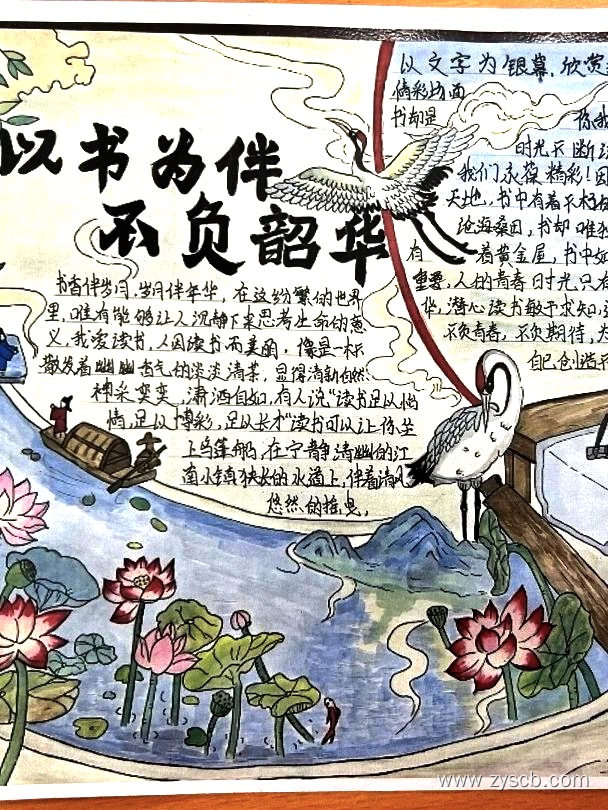 以书为伴
不负韶华
书香伴岁月，岁月伴年华，在这纷繁的世界
里，唯有能够让人沉静下来思考生命的意
义，我爱读书，人因读书而美丽，像是一杯
散发着幽幽香气的淡淡清茶，显得清新自然
神采奕奕，潇洒自如，有人说"读书足以怡
情，足以博彩，足以长才"读书可以让你坐
上乌篷船，在宁静清幽的江
南小镇狭长的水道上，伴着清风
悠然的摇曳，
以文字为银幕，欣赏
精彩场面
书却是
时光不断
我们永葆精彩！因
天地，书中有着不朽
沧海桑田，书却唯独
有 着黄金屋，书中如
重要，人的青春时光，只有
华，潜心读书敏于求知，
不负青春，不负期待，为
自己创造
www.zyscb.com